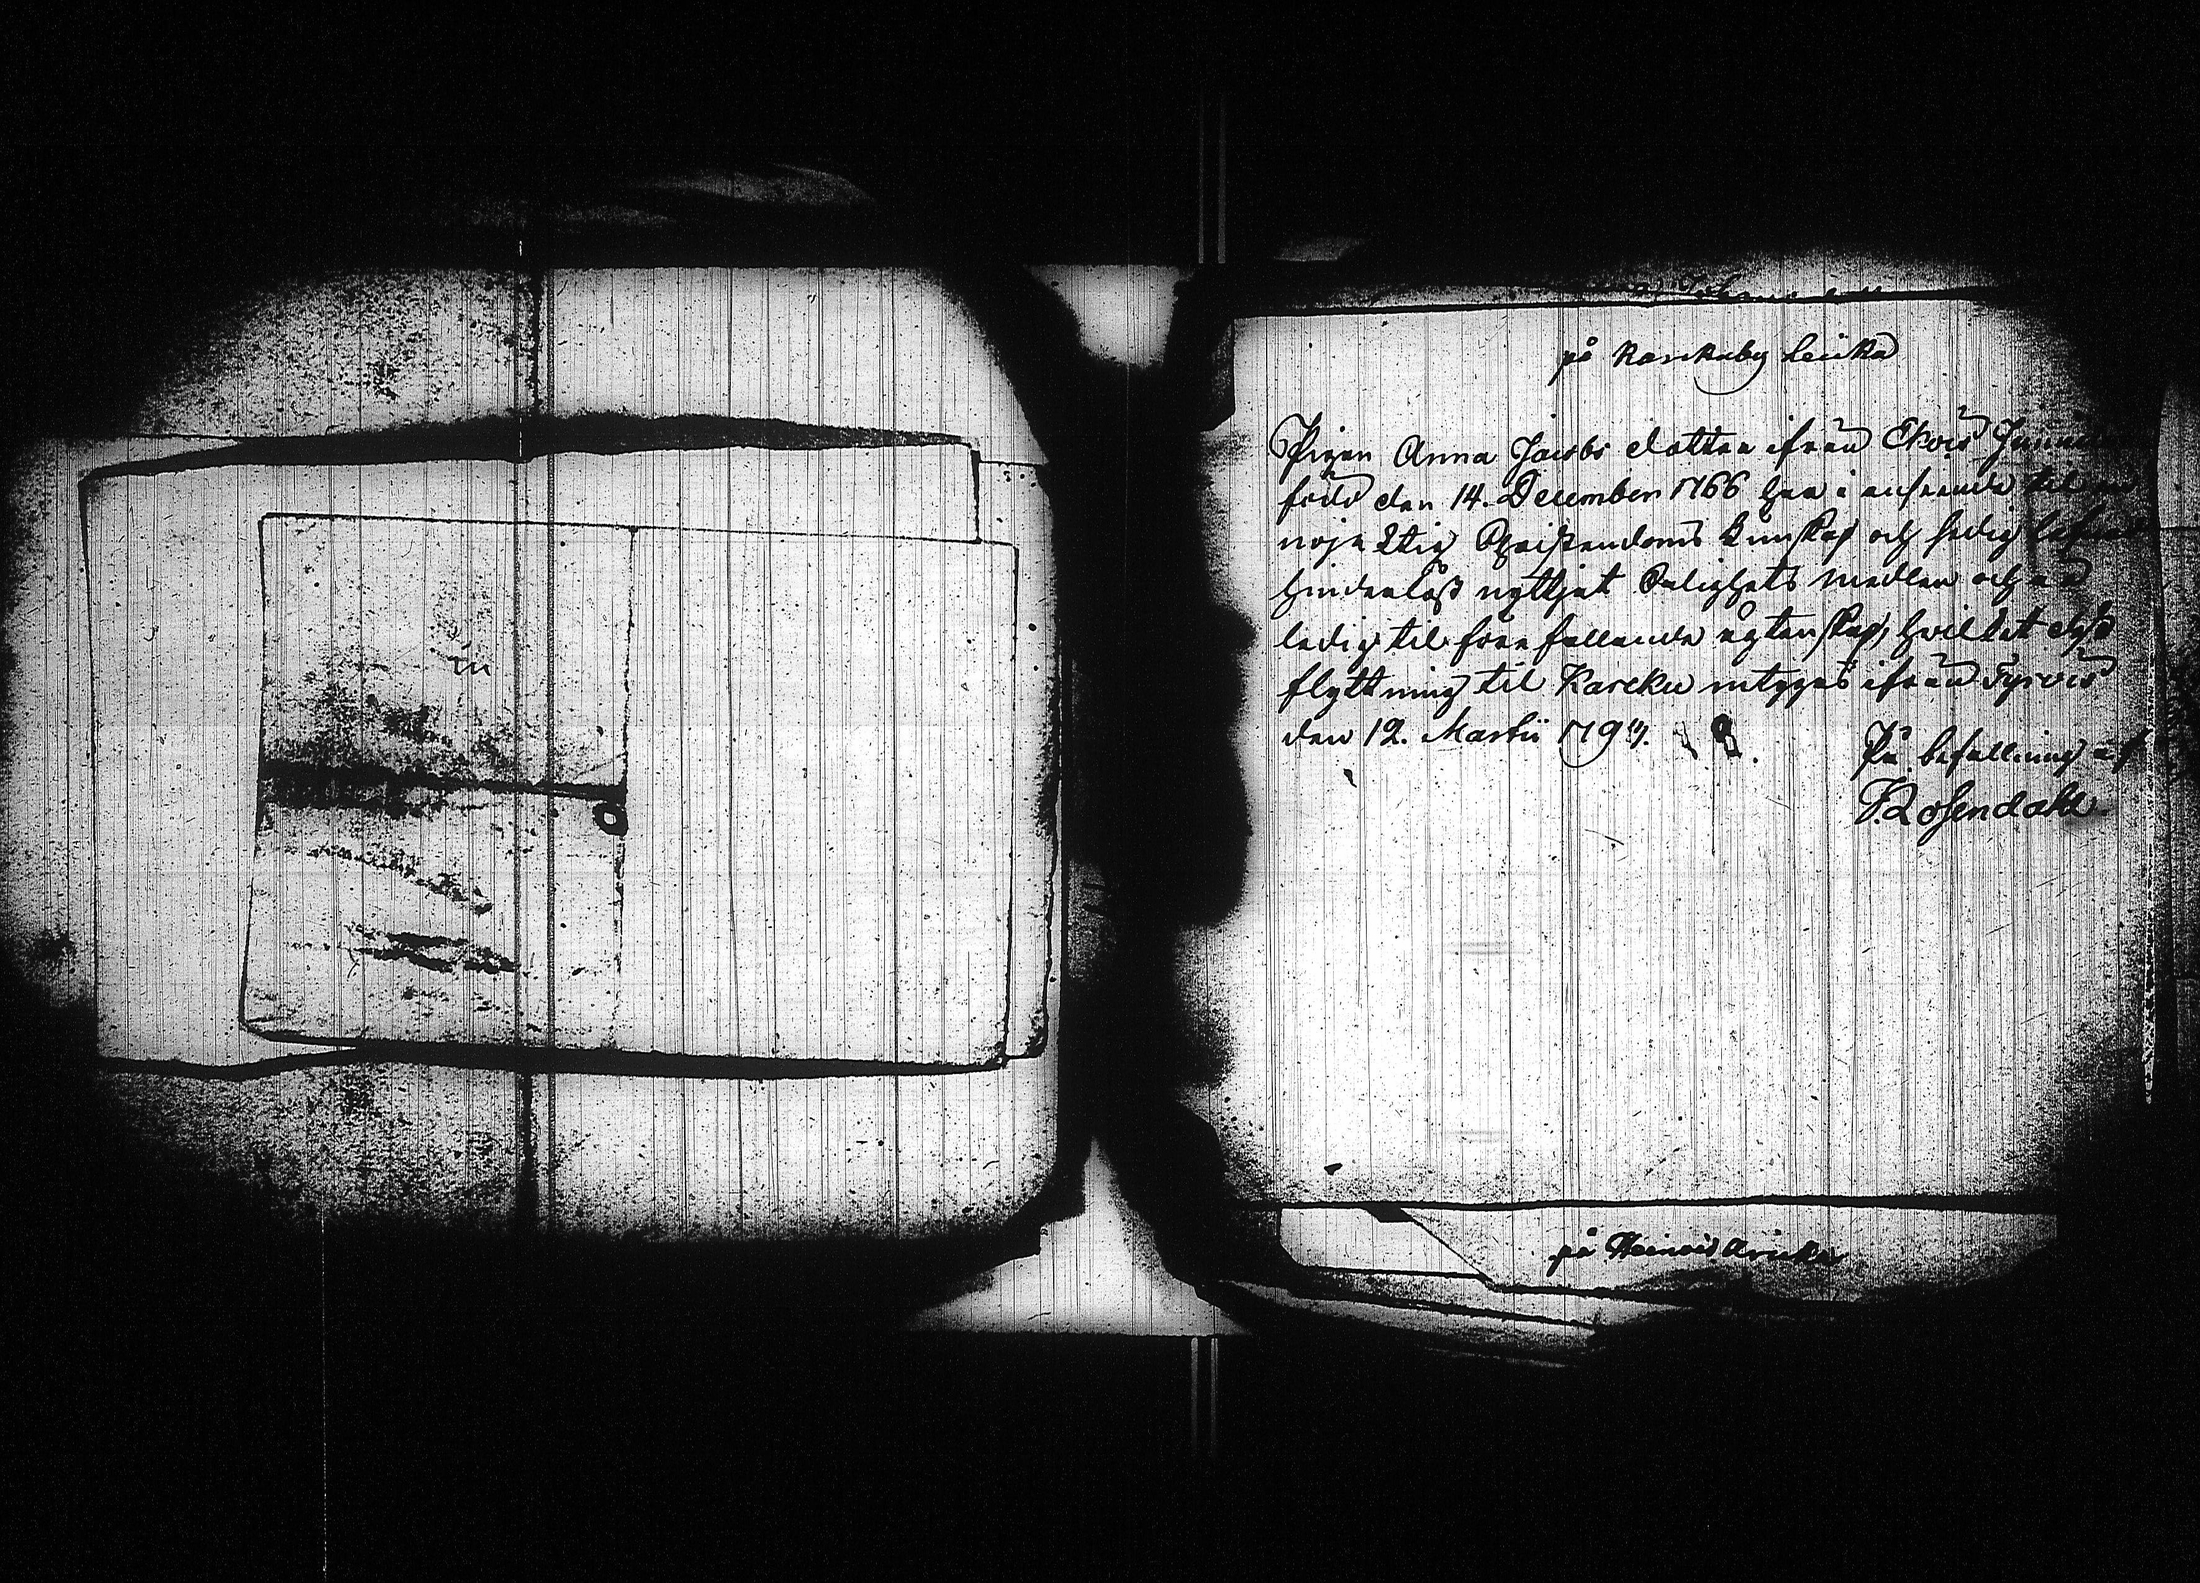 på Karkuby Leuka
Pigan Anna Jacobs dotter ifrån Ekois
född den 14. December 1766 har i anseende til en
nöjaktig Christendoms kunskap och sedig lefnad
hinderlöst nyttjat Salighets medlen och är
ledig til förefallande ägtenskap, hvilket vid
flyttning til Karcku intygas ifrån Tyrvis
den 12. Martii 179
På befallning af
Rosendahl
på Heinois